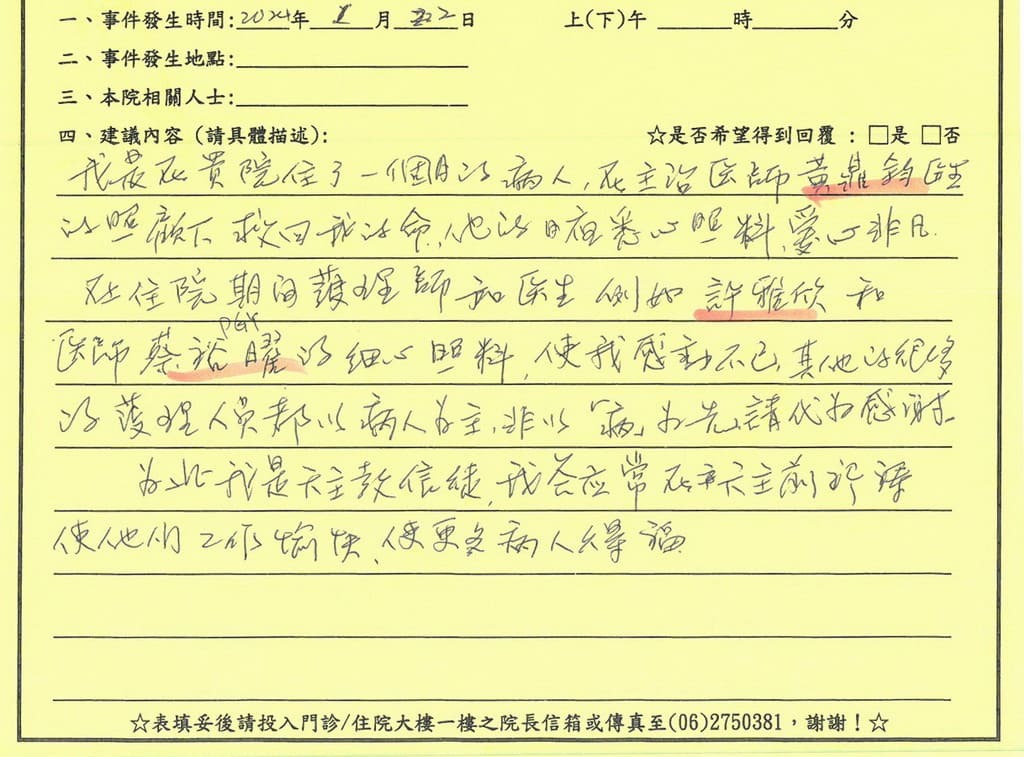 一、事件發生時間:2024年1月22日 上(下)午 時 分
二、事件發生地點:
三、本院相關人士:
四、建議內容(請具體描述): ☆是否希望得到回覆:□是 □否
我是在貴院住了一個月的病人,在主治医師黃鼎鈞医生
的照顧下救回我的命,他的日夜悉心照料,愛心非凡.
在住院期间護理師和医生例如許雅欣和
PGY
医師蔡裕曜的细心照料,使我感動不已,其他的很多
的護理人员都以病人为主,非以「病」为先,請代为感謝.
为此我是天主教信徒,我答应常在天主前祈禱
使他们工作愉快、使更多病人得福
☆表填妥後請投入門診/住院大樓一樓之院長信箱或傳真至(06)2750381,謝謝!☆